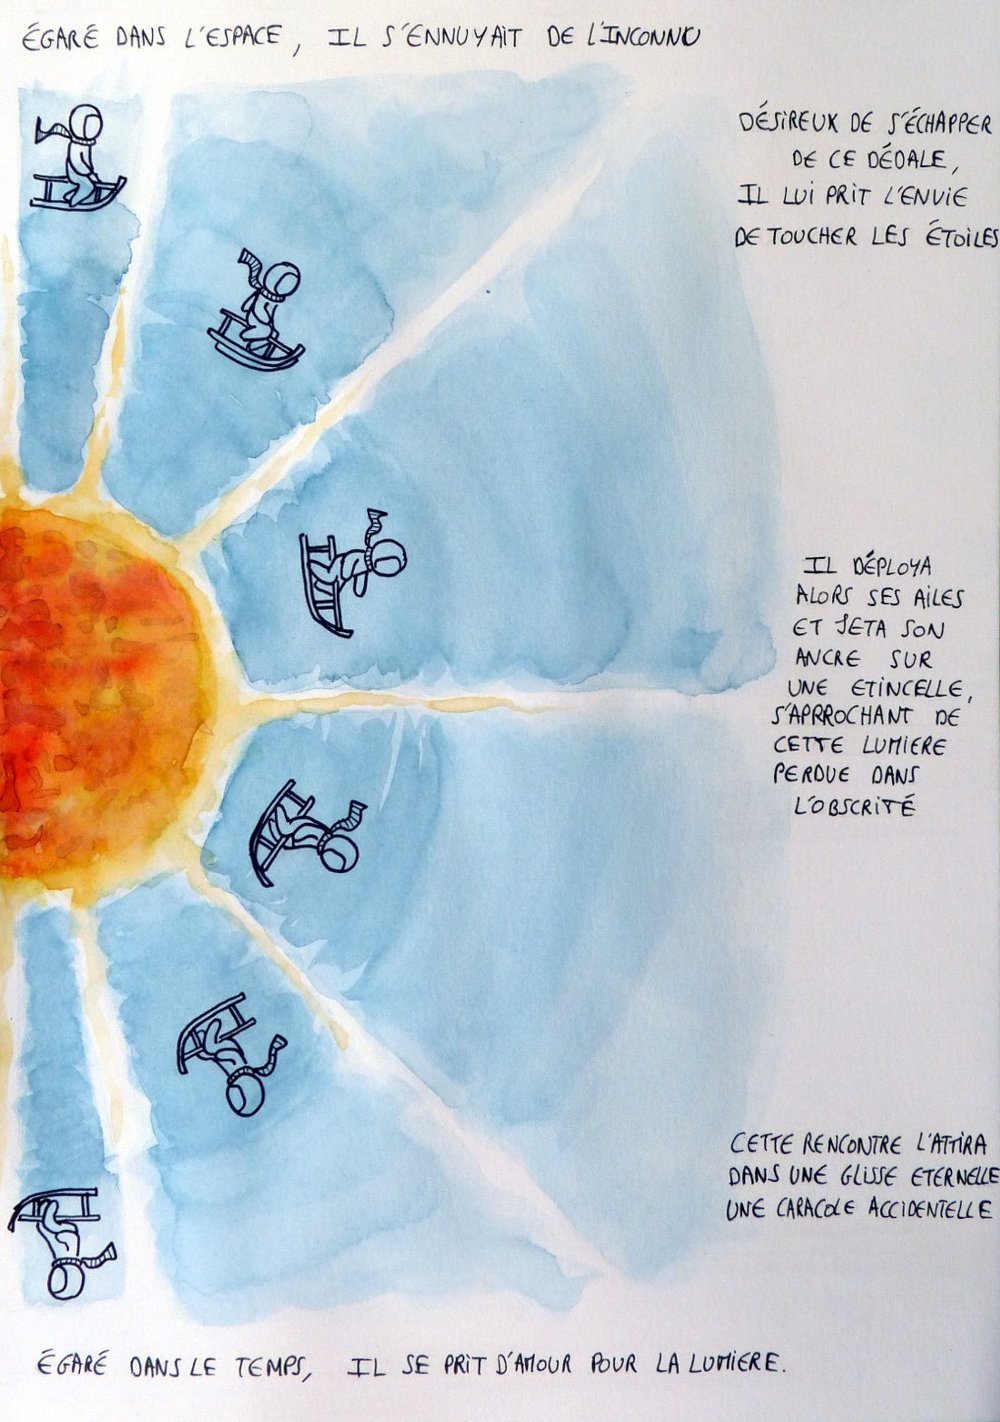 ÉGARÉ DANS L'ESPACE, IL S'ENNUYAIT DE L'INCONNU
DÉSIREUX DE S'ÉCHAPPER
DE CE DÉDALE,
IL LUI PRIT L'ENVIE
DE TOUCHER LES ÉTOILES
IL DÉPLOYA
ALORS SES AILES
ET JETA SON
ANCRE SUR
UNE ETINCELLE,
S'APPROCHANT DE
CETTE LUMIERE
PERDUE DANS
L'OBSCRITÉ
CETTE RENCONTRE L'ATTIRA
DANS UNE GLISSE ETERNELLE
UNE CARACOLE ACCIDENTELLE
ÉGARÉ DANS LE TEMPS, IL SE PRIT D'AMOUR POUR LA LUMIERE.